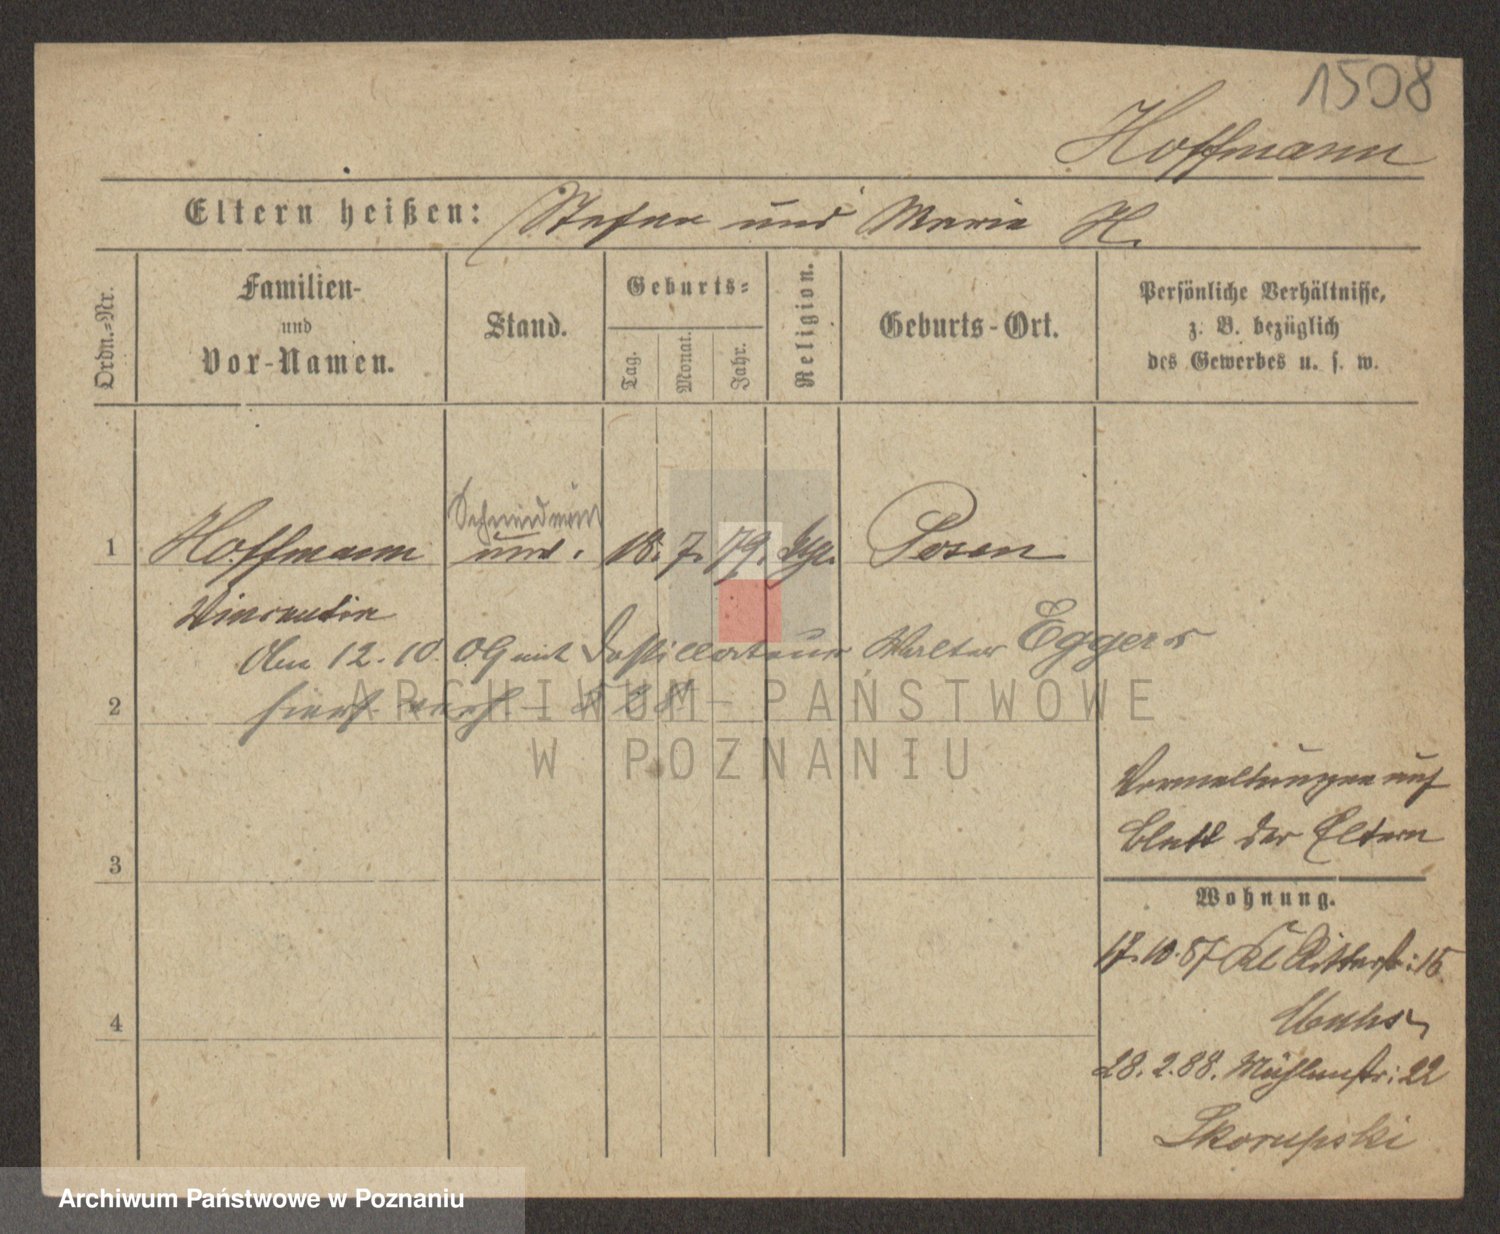 1508
Hoffmann
Eltern heißen: Stefan und Marie H.
Ordn.-Nr.
Familien-
und
Vor-Namen.
Stand.
Geburts-
Tag.
Monat.
Jahr.
Religion.
Geburts-Ort.
Persönliche Verhältnisse,
z. B. bezüglich
des Gewerbes u. s. w.
1 Hoffmann unv. 18. 7. 79. Posen
Vincentia
Am 12. 10. 09 mit Destillateur Walter Eggers
hiers. verh.
2
ARCHIWUM PAŃSTWOWE
W POZNANIU
Vermeldungen auf
Blatt der Eltern
3
Wohnung.
17.10.87 Kl Ritterstr: 15
4
28.2.88. Mühlenstr: 22
Skorupski
Archiwum Państwowe w Poznaniu